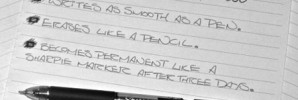 WRITES AS SMOOTH AS A PEN.
ERASES LIKE A PENCIL.
BECOMES PERMANENT LIKE A
SHARPIE MARKER AFTER THREE DAYS.